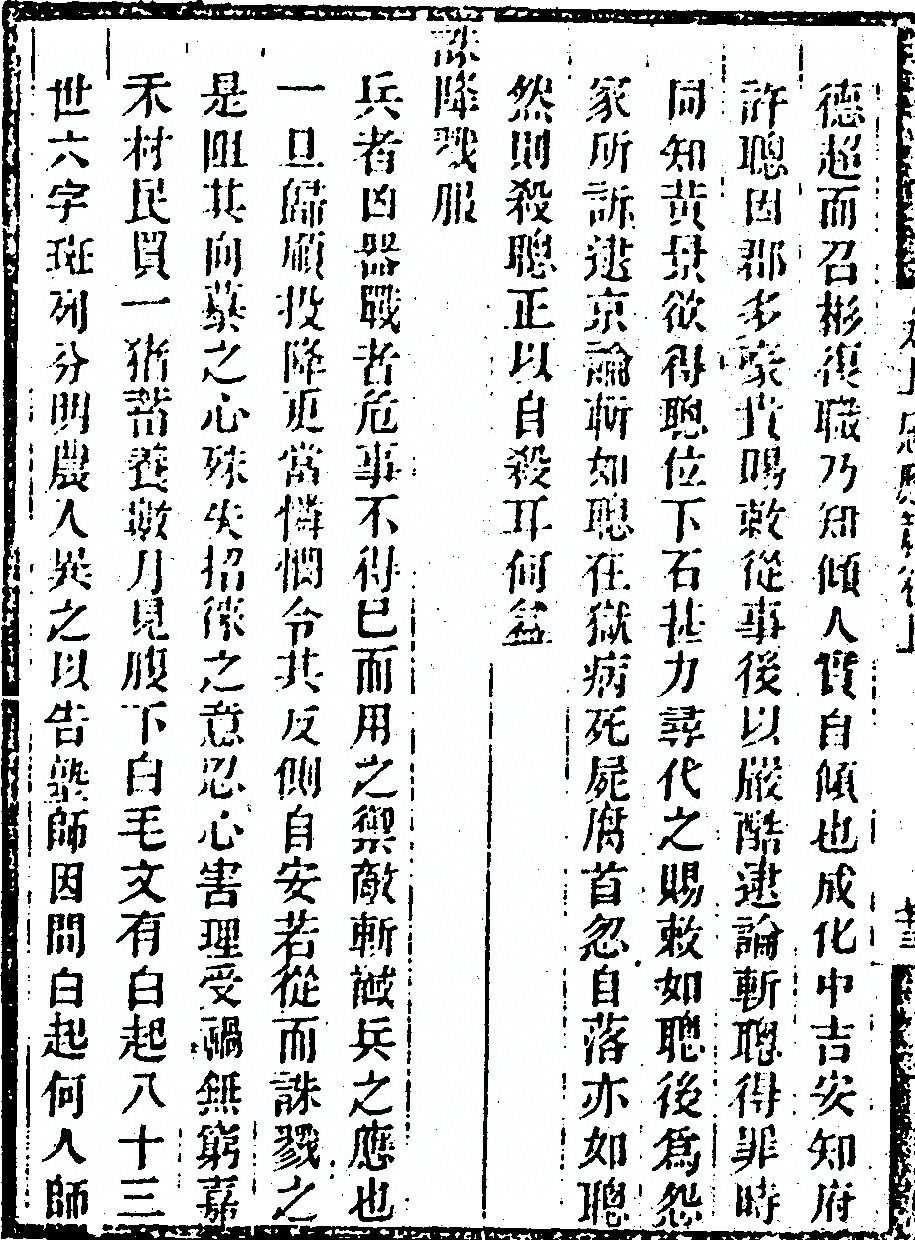 德超而召彬復職乃知傾人實自傾也成化中吉安知府
許聰因郡多豪貴賜敕從事後以嚴酷逮論斬聰得罪時
同知黃景欲得聰位下石甚力尋代之賜敕如聰後為怨
家所訴逮京論斬如聰在獄病死屍腐首忽自落亦如聰
然則殺聰正以自殺耳何益
誅降戮服
兵者凶器戰者危事不得已而用之禦敵斬馘兵之應也
一旦歸順投降更當憐憫令其反側自安若從而誅戮之
是阻其向慕之心殊失招徠之意忍心害理受禍無窮嘉
禾村民買一猪畜養數月見腹下白毛文有白起八十三
世六字斑列分明農人異之以告塾師因問白起何人師